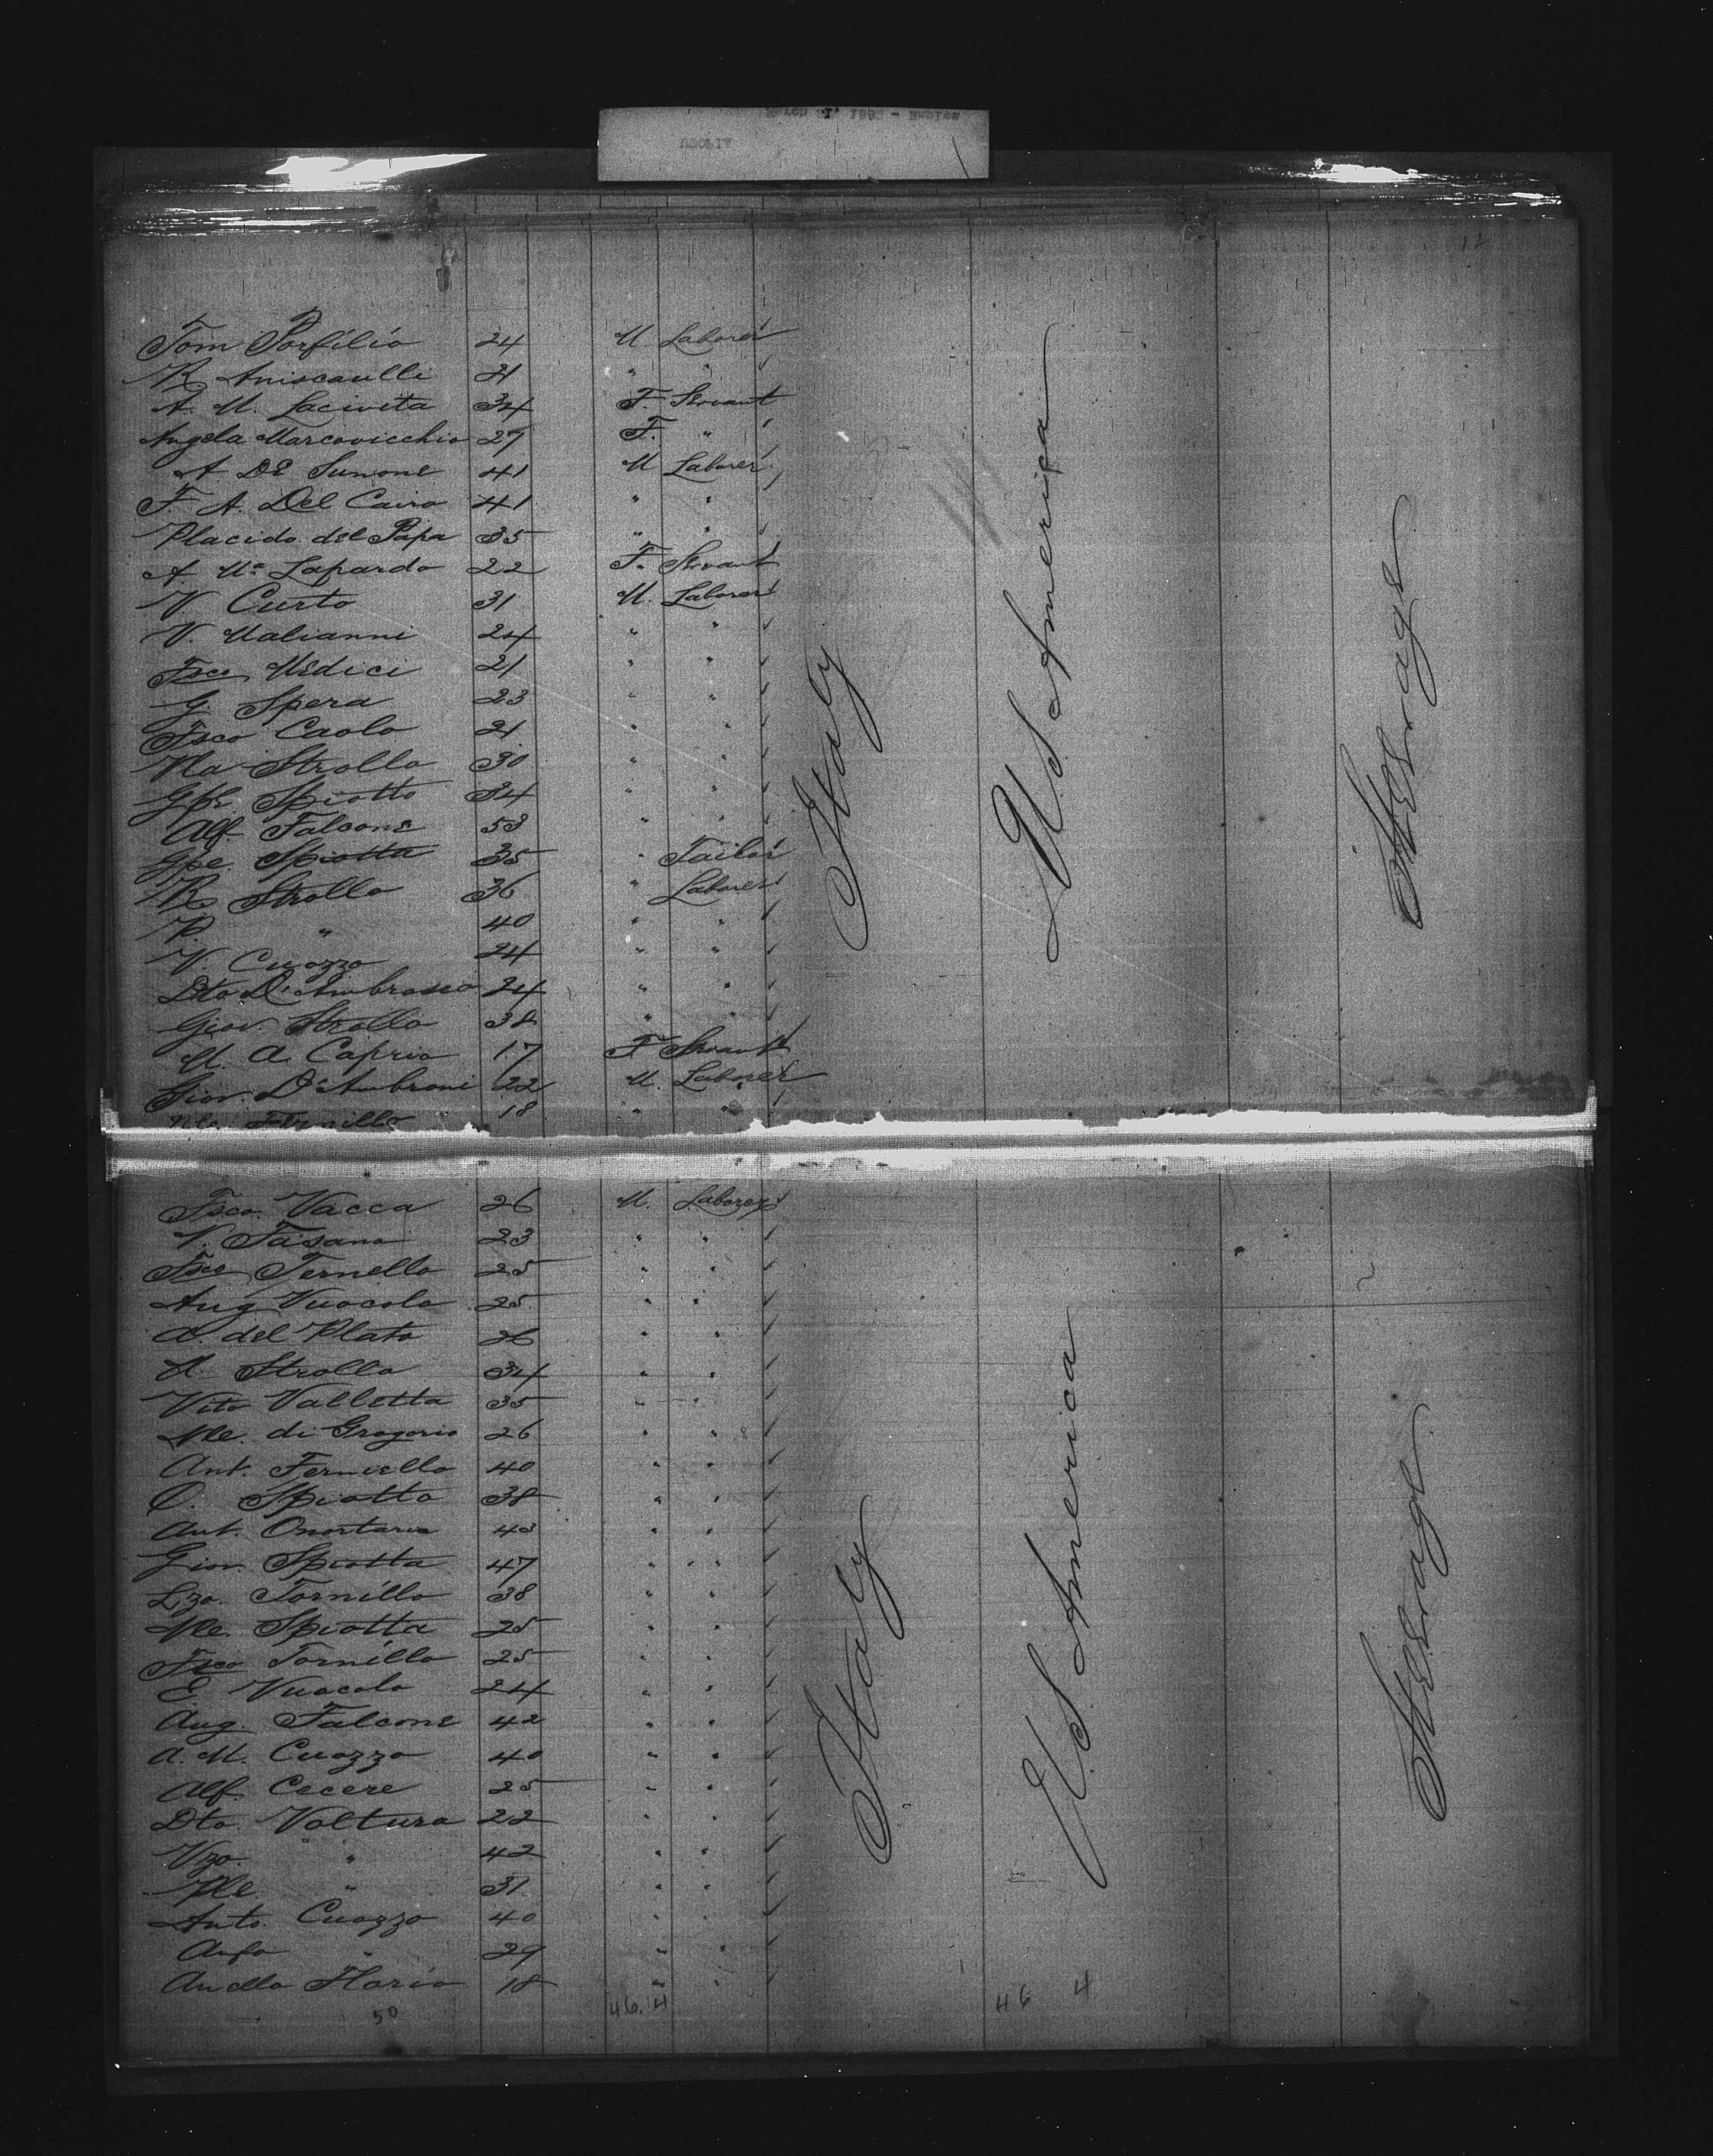 12
Tom Porfilio 24 M Laborer
R. Aniscaulli 21 " "
A. M. Lacivita 34 F. Servant
Angela Marcovicchio 27 F. "
A. De Simone 41 M Laborer
F. A. Del Cairo 41 " "
Placido del Papa 35 " "
A. Ma. Lapardo 22 F. Servant
V. Curto 31 M. Laborer
V. Malianni 24 " "
Fsco Medici 21 " "
G. Spera 23 " "
Fsco Caolo 21 " "
Strollo 30 " "
Gpe. Spiotto 34 " "
Alf. Falcone 53 " "
Gpe. Spiotta 35 " Tailor
R. Strollo 36 " Laborer
P. " 40 " "
V. Cuozzo 24 " "
Dto D'Ambrosio 24 " "
Giov. Strollo 38 " "
M. A. Caprio 17 F Servant
Giov. D'Ambroni 22 M. Laborer
18 " "
Italy
U S America
Steerage
Fsco. Vacca 26 M. Laborer
V. Fasano 23 " "
Fsco Ternello 25 " "
Aug Vuocolo 25 " "
A. del Plato 26 " "
A. Strollo 34 " "
Vito Valletta 35 " "
Mle. di Gregorio 26 " "
Ant. Ferniello 40 " "
O. Spiotto 38 " "
Ant. 43 " "
Giov. Spiotta 47 " "
Lzo. Tornillo 38 " "
Mle. Spiotta 25 " "
Fsco Tornillo 25 " "
E. Vuocolo 24 " "
Aug. Falcone 42 " "
A. M. Cuozzo 40 " "
Alf. Cecere 25 " "
Dto. Volturo 22 " "
Vzo. " 42 " "
Mle " 31 " "
Anto. Cuozzo 40 " "
" 29 " "
Aniello Florio 18 " "
Italy
U.S. America
Steerage
50 46. 4 46 4